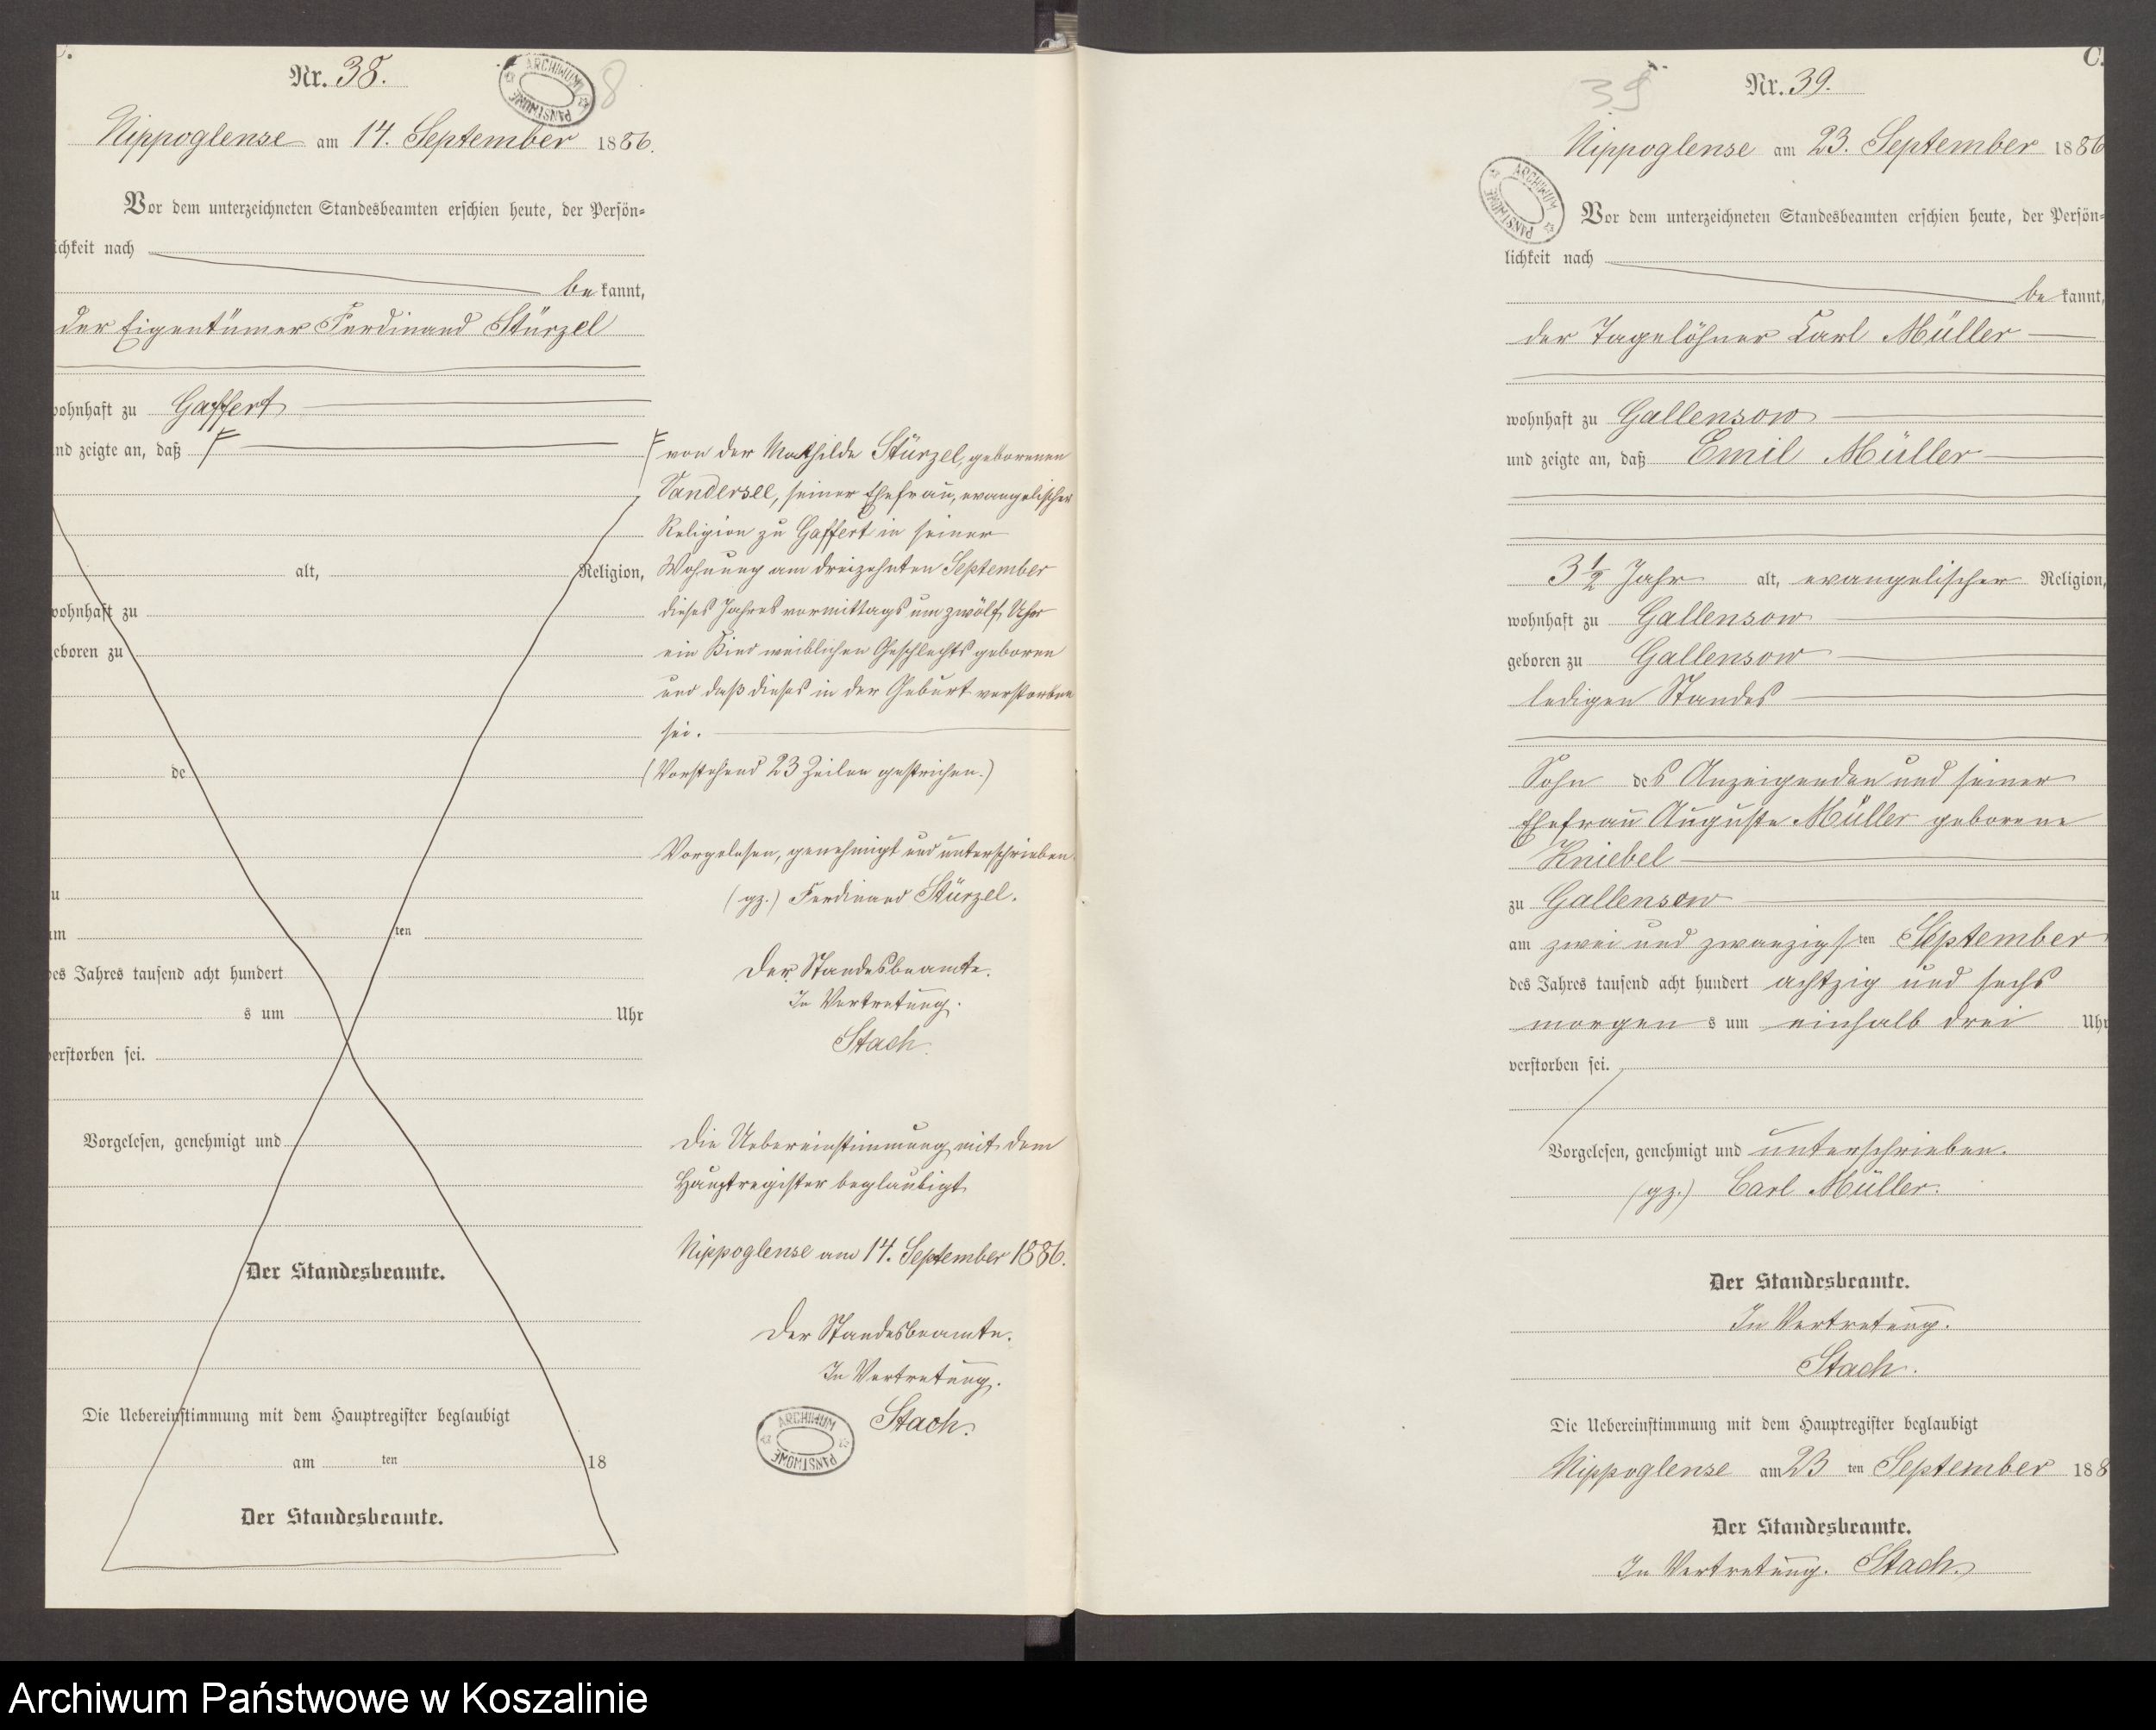 Nr. 38.
ARCHIWUM PAŃSTWOWE
8
Nippoglense am 14. September 1886.
Vor dem unterzeichneten Standesbeamten erschien heute, der Persön=
ichkeit nach
be kannt,
der Eigentümer Ferdinand Stürzel
wohnhaft zu Gaffert
und zeigte an, daß F
alt, Religion,
wohnhaft zu
geboren zu
de
zu
am ten
des Jahres tausend acht hundert
s um Uhr
verstorben sei.
Vorgelesen, genehmigt und
Der Standesbeamte.
Die Uebereinstimmung mit dem Hauptregister beglaubigt
am ten 18
Der Standesbeamte.
F von der Mathilde Stürzel, geborenen
Sandersee, seiner Ehefrau, evangelischer
Religion zu Gaffert in seiner
Wohnung am dreizehnten September
dieses Jahres vormittags um zwölf Uhr
ein Kind weiblichen Geschlechts geboren
und daß dieses in der Geburt verstorben
sei.
(Vorstehend 23 Zeilen gestrichen.)
Vorgelesen, genehmigt und unterschrieben
(gz.) Ferdinand Stürzel.
Der Standesbeamte.
In Vertretung.
Stach.
Die Uebereinstimmung mit dem
Hauptregister beglaubigt
Nippoglense am 14. September 1886.
Der Standesbeamte.
In Vertretung.
Stach.
ARCHIWUM PAŃSTWOWE
C.
39
Nr. 39.
Nippoglense am 23. September 1886
ARCHIWUM PAŃSTWOWE
Vor dem unterzeichneten Standesbeamten erschien heute, der Persön=
lichkeit nach
be kannt,
der Tagelöhner Carl Müller
wohnhaft zu Gallensow
und zeigte an, daß Emil Müller
3 1/2 Jahr alt, evangelischer Religion,
wohnhaft zu Gallensow
geboren zu Gallensow
ledigen Standes
Sohn des Anzeigenden und seiner
Ehefrau Auguste Müller geborene
Kniebel
zu Gallensow
am zwei und zwanzigsten September
des Jahres tausend acht hundert achtzig und sechs
morgen s um einhalb drei Uhr
verstorben sei.
Vorgelesen, genehmigt und unterschrieben.
(gz.) Carl Müller.
Der Standesbeamte.
In Vertretung.
Stach.
Die Uebereinstimmung mit dem Hauptregister beglaubigt
Nippoglense am 23 ten September 188
Der Standesbeamte.
In Vertretung. Stach.
Archiwum Państwowe w Koszalinie